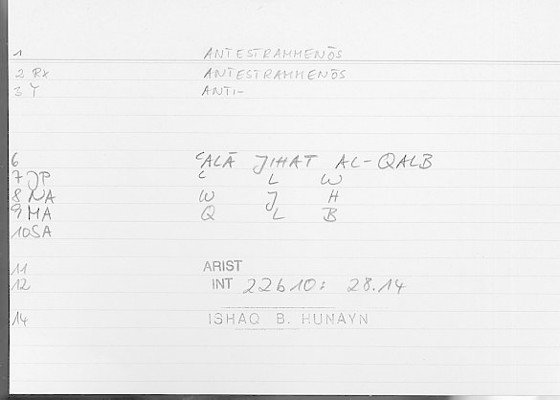 1 ANTESTRAMMENŌS
2 RX ANTESTRAMMENŌS
3 Y ANTI-
6 ʿALĀ JIHAT AL-QALB
7 JP ʿ L W
8 NA W J H
9 MA Q L B
10 SA
11 ARIST
12 INT 22b10: 28.14
14 ISHAQ B. HUNAYN